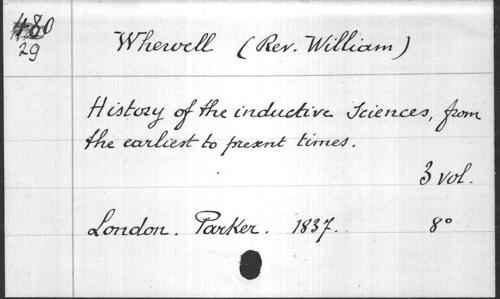 480
29
Whewell (Rev. William)
History of the inductive Sciences, from
the earliest to present times.
3 vol.
London. Parker. 1837. 8°